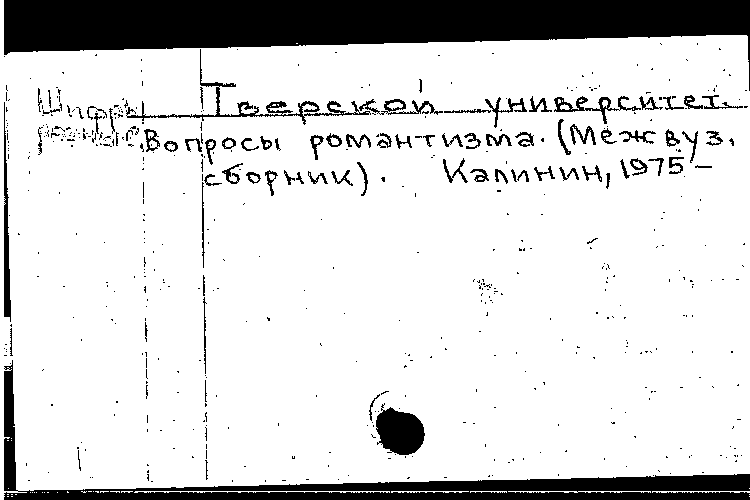 Шифры Тверской университет.
разные. Вопросы романтизма. (Межвуз.
сборник). Калинин, 1975 –